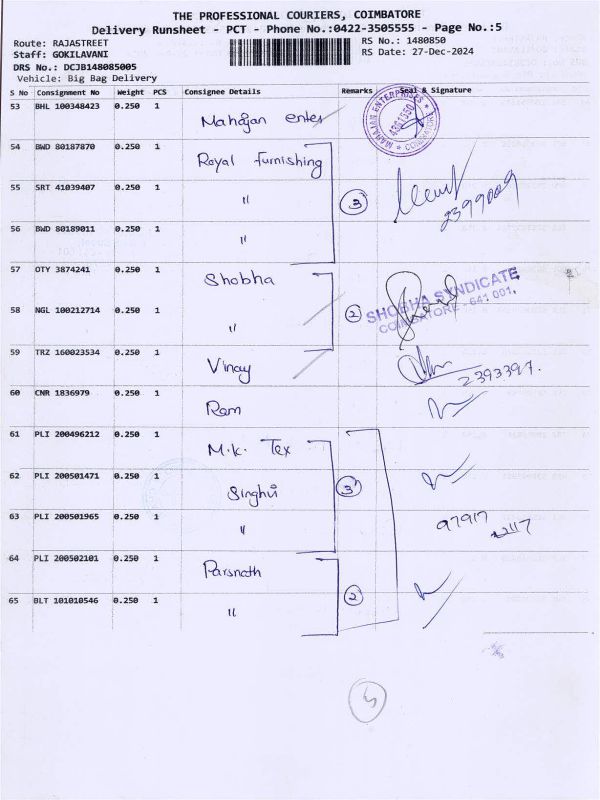 THE PROFESSIONAL COURIERS, COIMBATORE
Delivery Runsheet - PCT - Phone No.:0422-3505555 - Page No.:5
Route: RAJASTREET
RS No.: 1480850
Staff: GOKILAVANI
RS Date: 27-Dec-2024
DRS No.: DCJB148085005
Vehicle: Big Bag Delivery
S No Consignment No Weight PCS Consignee Details Remarks Seal & Signature
53 BHL 100348423 0.250 1 Mahajan enter
MAHAJAN ENTERPRISES COIMBATORE
54 BWD 80187870 0.250 1 Royal furnishing
55 SRT 41039407 0.250 1 " 3
2399009
56 BWD 80189011 0.250 1 "
57 OTY 3874241 0.250 1 Shobha
SHOBHA SYNDICATE
COIMBATORE - 641 001.
58 NGL 100212714 0.250 1 " 2
59 TRZ 160023534 0.250 1 Vinay
2393397.
60 CNR 1836979 0.250 1 Ram
61 PLI 200496212 0.250 1 M.K. Tex
62 PLI 200501471 0.250 1 Singhvi 3
63 PLI 200501965 0.250 1 "
97917
64 PLI 200502101 0.250 1 Parsnath
65 BLT 101010546 0.250 1 " 2